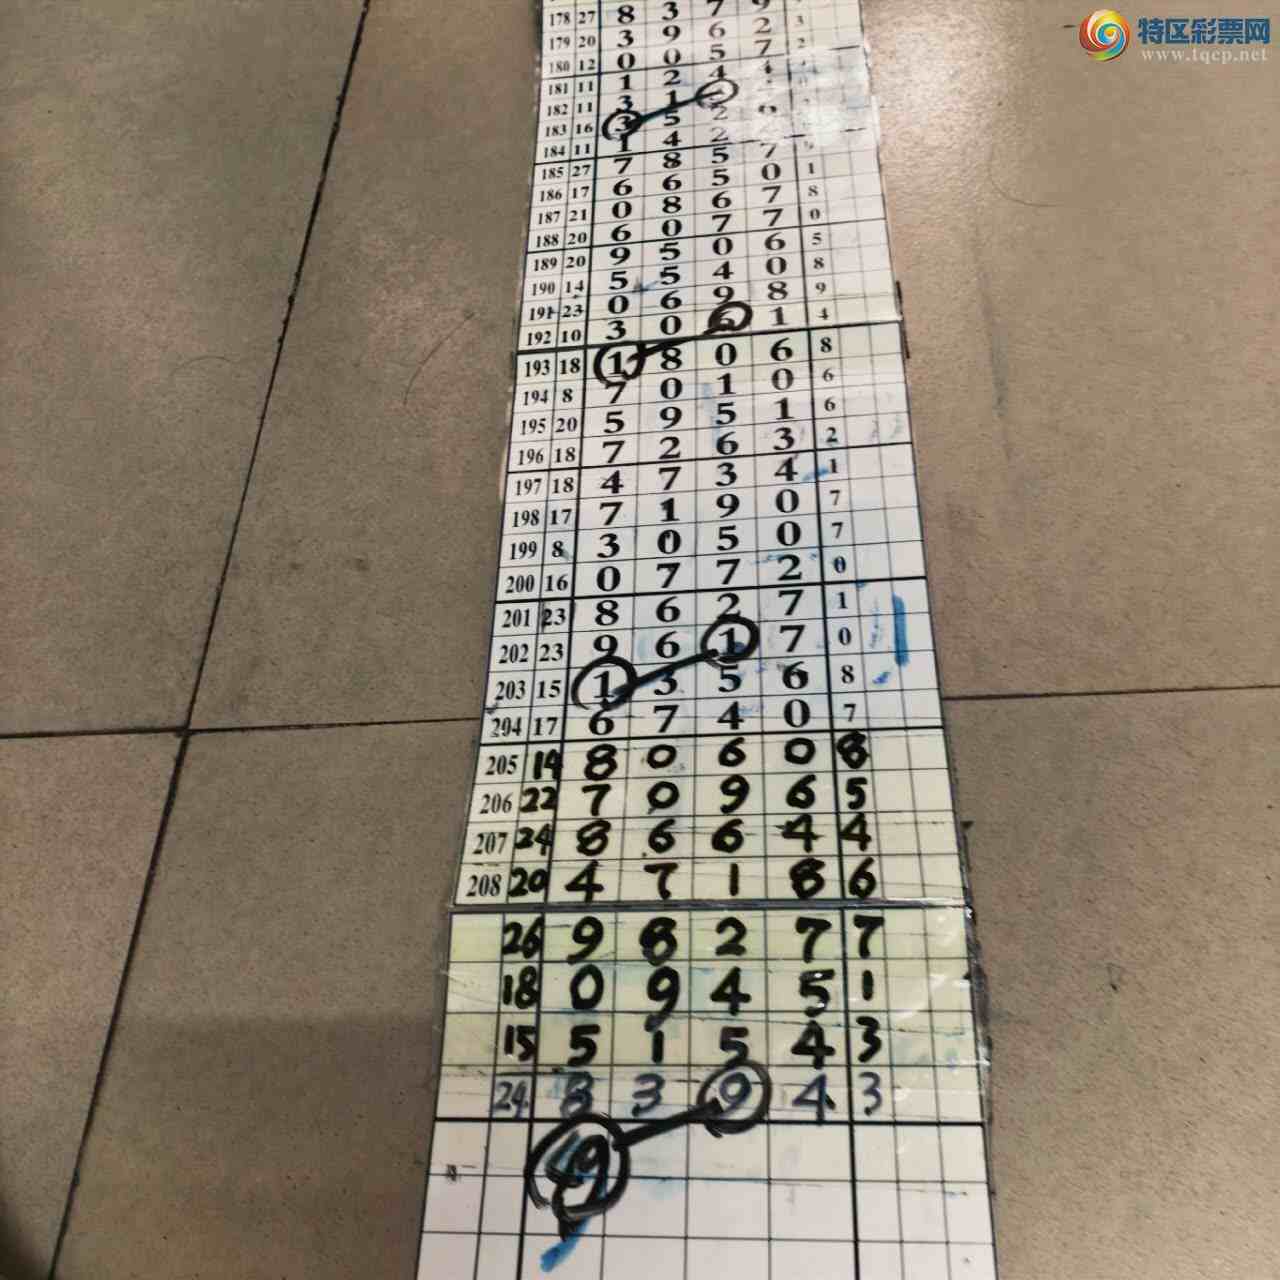 特区彩票网
www.tqcp.net
178 27 8 3 7 9 3
179 20 3 9 6 2 2
180 12 0 0 5 7
181 11 1 2 4 4
182 11 3 1
183 16 3 5 2
184 11 1 4 2
185 27 7 8 5 7 9
186 17 6 6 5 0 1
187 21 0 8 6 7 8
188 20 6 0 7 7 0
189 20 9 5 0 6 5
190 14 5 5 4 0 8
191 23 0 6 9 8 9
192 10 3 0 6 1 4
193 18 1 8 0 6 8
194 8 7 0 1 0 6
195 20 5 9 5 1 6
196 18 7 2 6 3 2
197 18 4 7 3 4 1
198 17 7 1 9 0 7
199 8 3 0 5 0 7
200 16 0 7 7 2 0
201 23 8 6 2 7 1
202 23 9 6 1 7 0
203 15 1 3 5 6 8
204 17 6 7 4 0 7
205 14 8 0 6 0 8
206 22 7 0 9 6 5
207 24 8 6 6 4 4
208 20 4 7 1 8 6
26 9 8 2 7 7
18 0 9 4 5 1
15 5 1 5 4 3
24 8 3 9 4 3
9